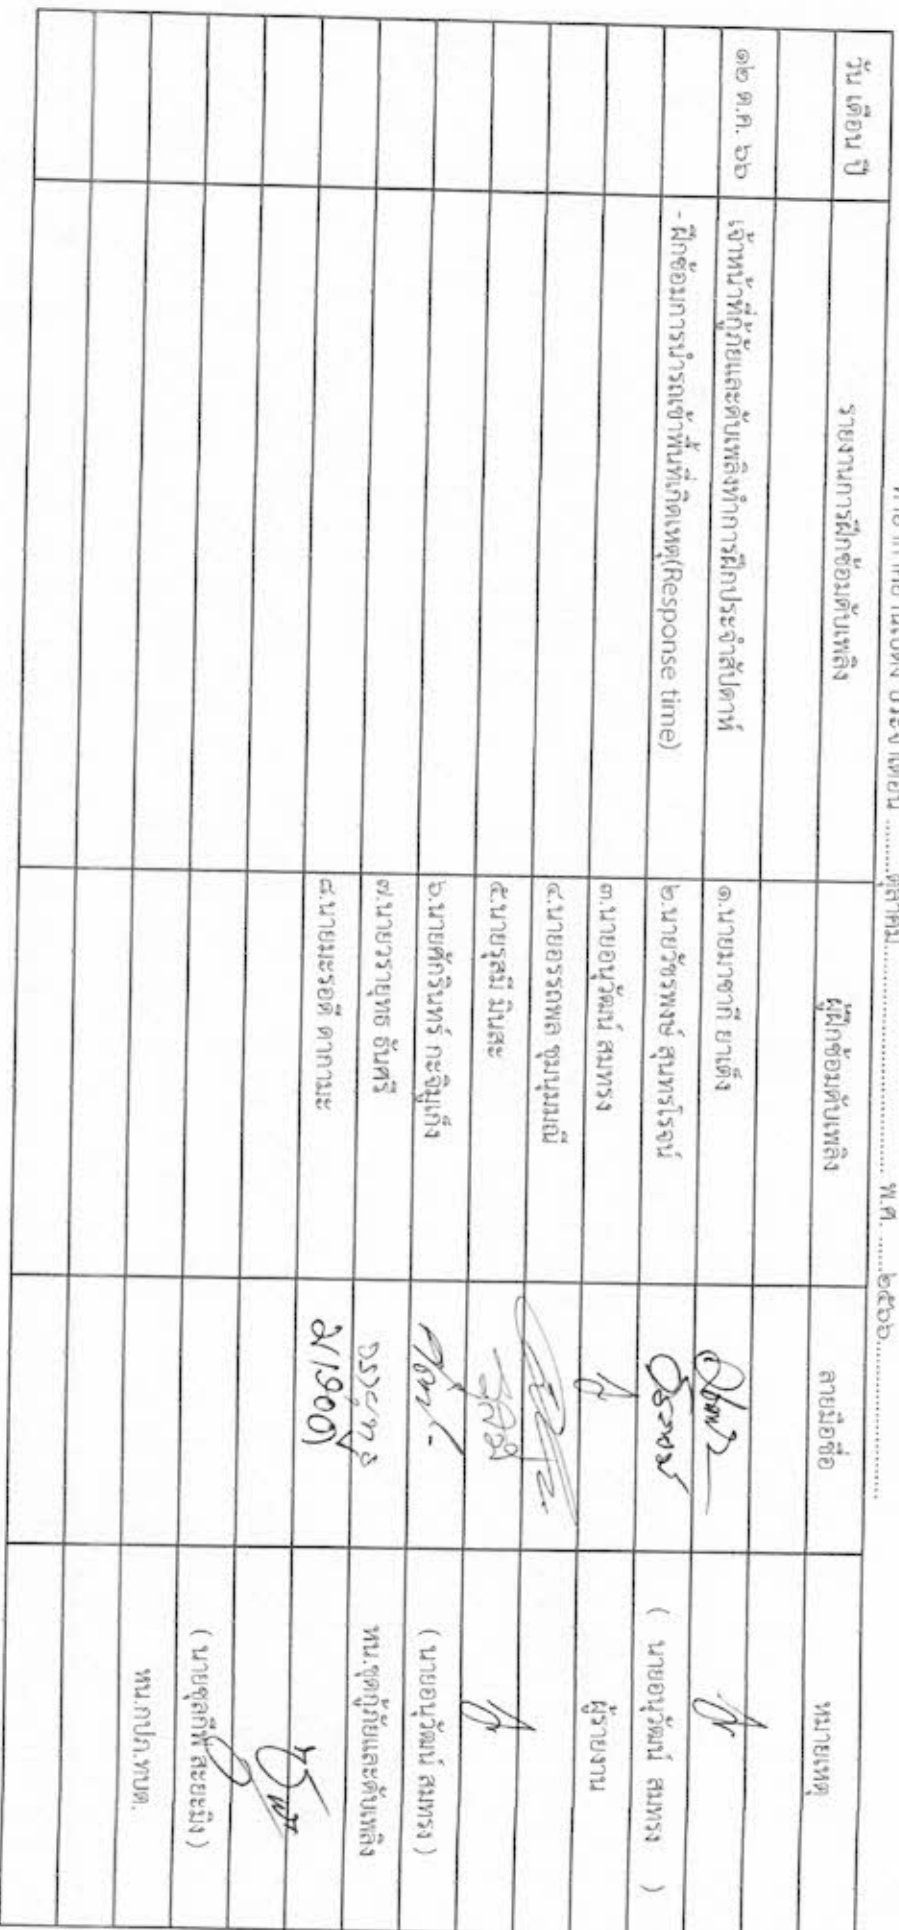 ประจำเดือน ........ตุลาคม........ พ.ศ. ......๒๕๖๖......
วัน เดือน ปี รายงานการฝึกซ้อมดับเพลิง ผู้ฝึกซ้อมดับเพลิง ลายมือชื่อ หมายเหตุ
๑๒ ต.ค. ๖๖ เจ้าหน้าที่กู้ภัยและดับเพลิงทำการฝึกประจำสัปดาห์ ๑.นายมาซากี ยาเด็ง
- ฝึกซ้อมการนำรถเข้าพื้นที่เกิดเหตุ(Response time) ๒.นายวัชรพงษ์ สุนทรโรจน์ ( นายอนุวัฒน์ สมทรง )
๓.นายอนุวัฒน์ สมทรง ผู้รายงาน
๔.นายอรรถพล ชุมนุมมณี
๕.นายรุสมี มินสะ
๖.นายศักรินทร์ กะจิมูเก็ง ( นายอนุวัฒน์ สมทรง )
๗.นายวรายุทธ อินศรี วรายุทธ หน.ชุดกู้ภัยและดับเพลิง
๘.นายมะรอดี ดากามะ
( นายซุลกีฟ สะยะมิง )
หน.กปภ.ทบต.